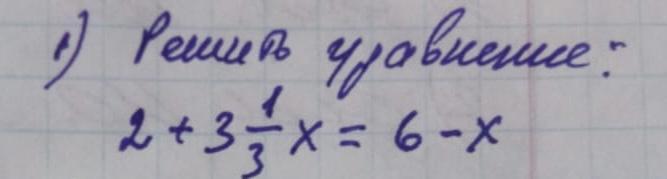 1) Решить уравнение:
2 + 3 1/3 x = 6 - x